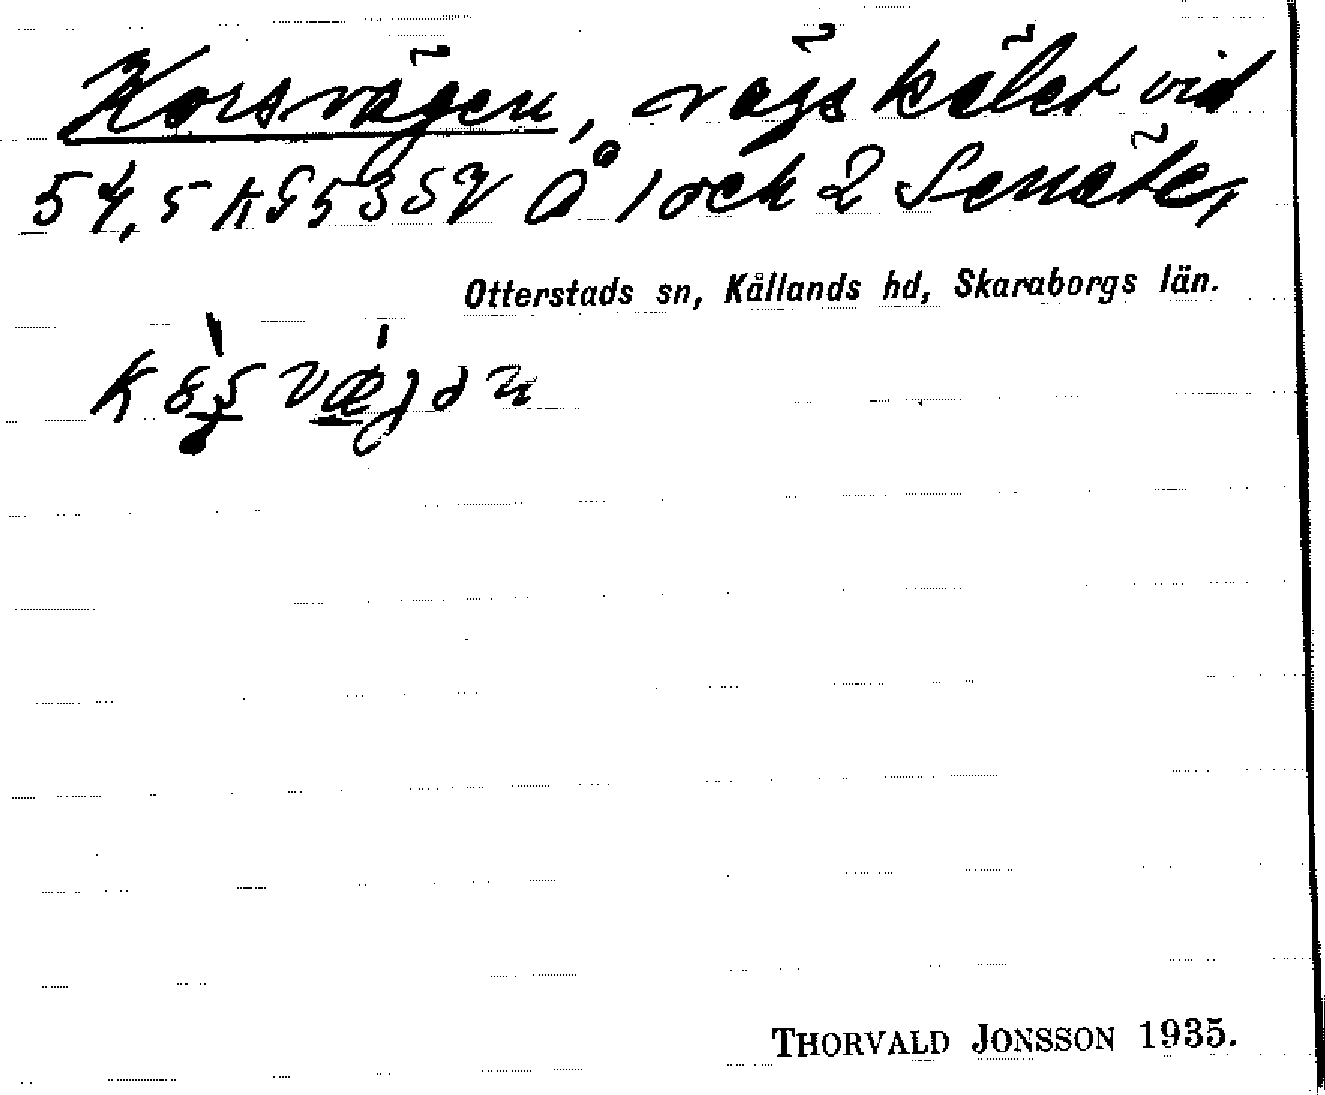 Korsvägen, vägskälet vid
Å 1 och 2 Senäte,
Otterstads sn, Kållands hd, Skaraborgs län.
THORVALD JONSSON 1935.